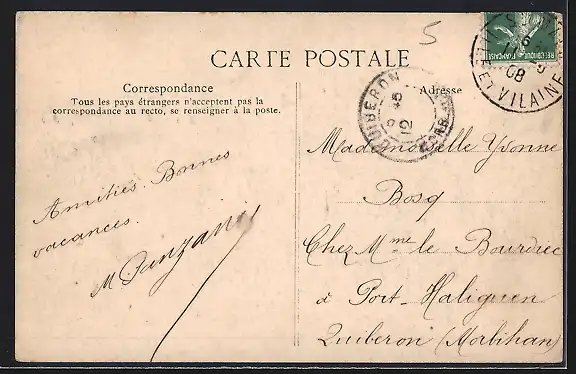 5
CARTE POSTALE
RÉPUBLIQUE FRANÇAISE
08
ET VILAINE
QUIBERON
12
Correspondance
Tous les pays étrangers n'acceptent pas la
correspondance au recto, se renseigner à la poste.
Adresse
Amitiés. Bonnes
vacances.
M
Mademoiselle Yvonne
Bosq
Chez Mme le Bourdiec
à Port-Haliguen
Quiberon (Morbihan)